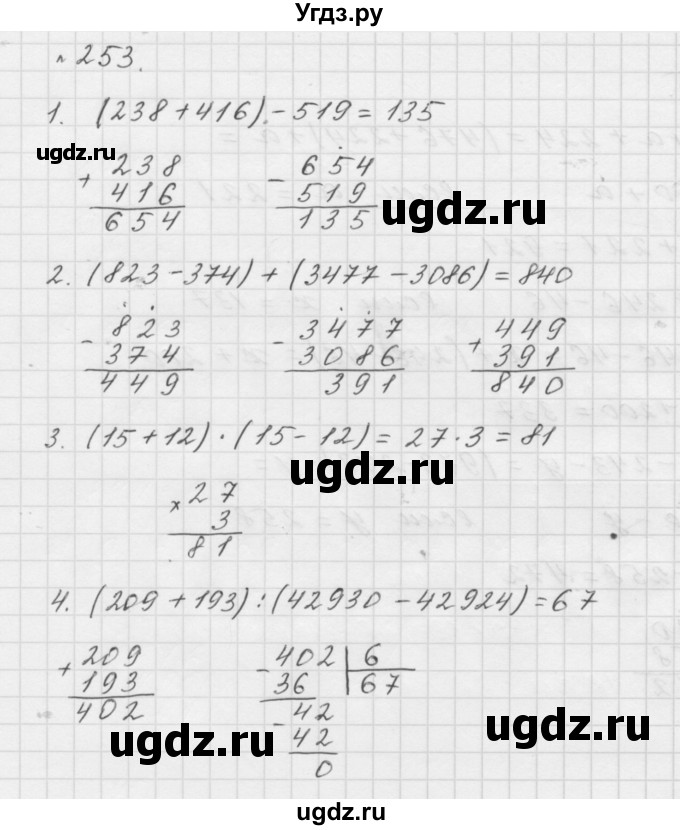 Угдз.ру
№ 253.
1. (238+416)-519=135
ugdz.ru
+ 238 - 654
416 519
654 135
ugdz.ru
2. (823-374)+(3477-3086)=840
- 823 - 3477 + 449
374 3086 391
449 391 840
ugdz.ru
3. (15+12)·(15-12)=27·3=81
ugdz.ru
× 27
3
81
ugdz.ru
4. (209+193):(42930-42924)=67
+ 209 - 402 | 6
193 36 67
402 - 42
42
0
ugdz.ru
ugdz.ru
ugdz.ru